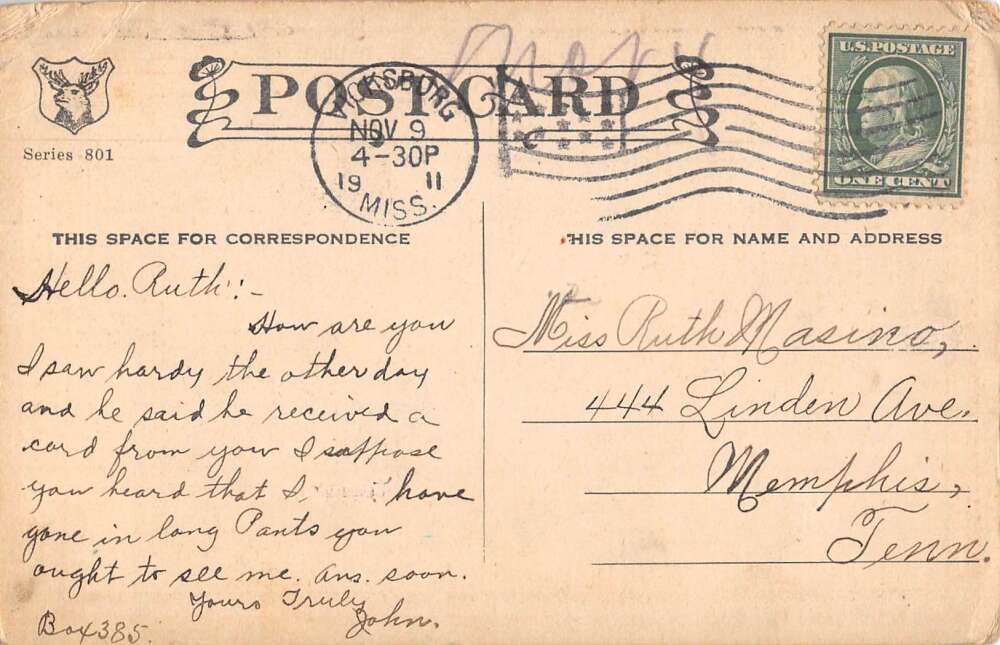 U.S. POSTAGE
ONE CENT
POST CARD
Series 801
VICKSBURG
NOV 9
4-30P
19 11
MISS.
THIS SPACE FOR CORRESPONDENCE
Hello. Ruth:-
How are you
I saw hardy the other day
and he said he received a
card from you I suppose
you heard that I have
gone in long Pants you
ought to see me. Ans. soon.
Yours Truly
John.
Box 385.
THIS SPACE FOR NAME AND ADDRESS
Miss Ruth Masino,
444 Linden Ave.
Memphis,
Tenn.